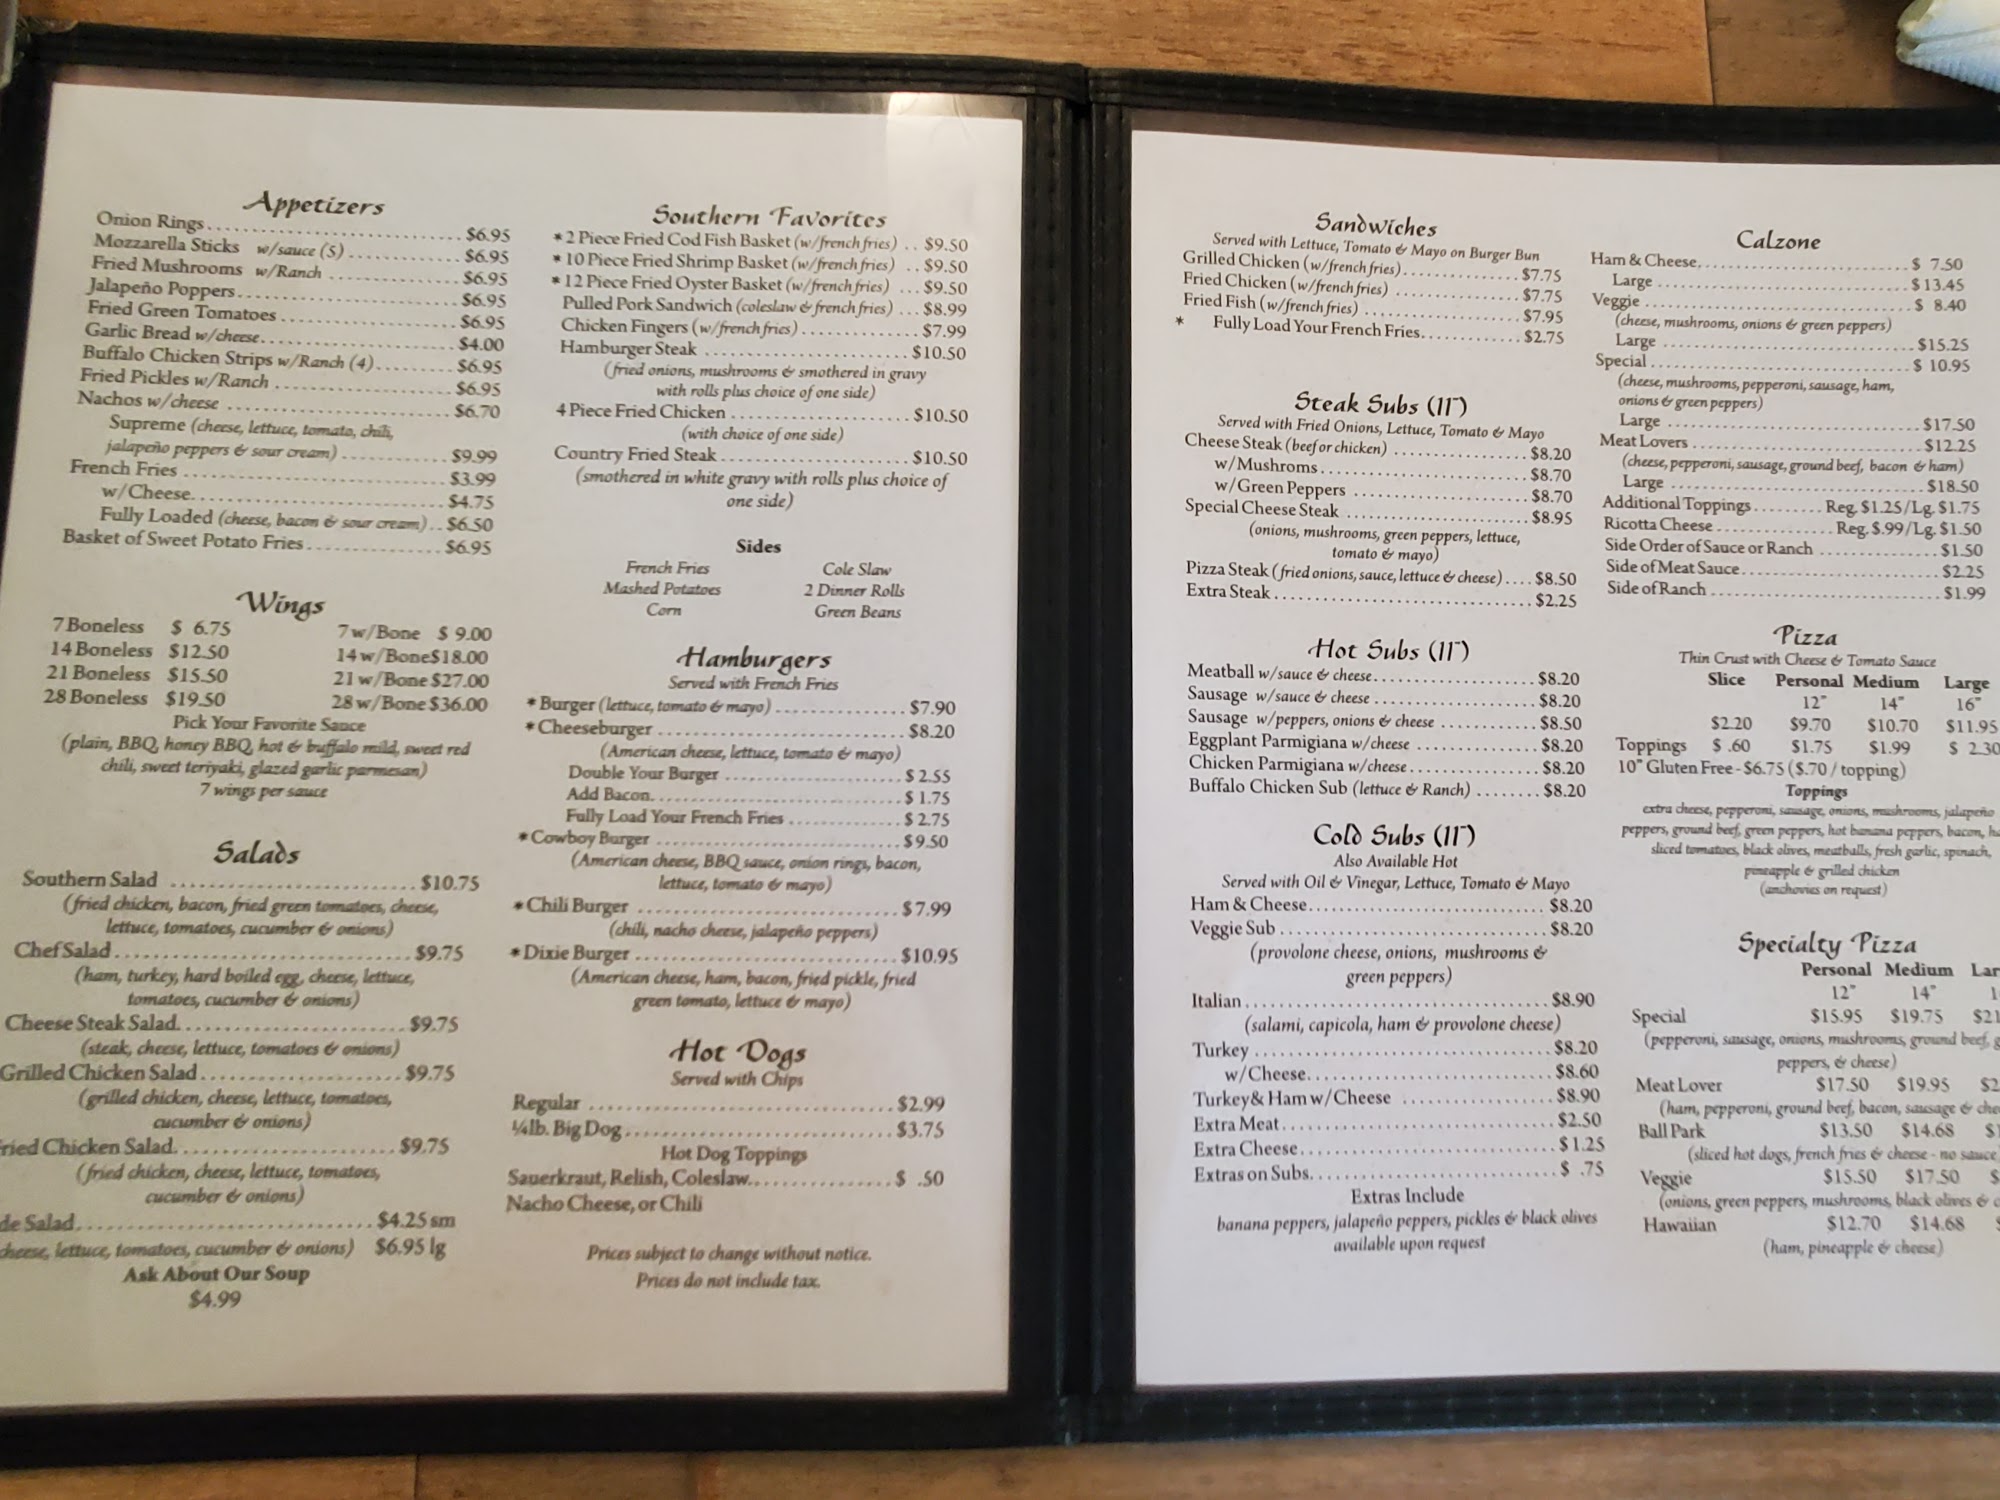 Appetizers
Onion Rings.......... $6.95
Mozzarella Sticks w/sauce (5).......... $6.95
Fried Mushrooms w/Ranch .......... $6.95
Jalapeño Poppers.......... $6.95
Fried Green Tomatoes .......... $6.95
Garlic Bread w/cheese.......... $4.00
Buffalo Chicken Strips w/Ranch (4).......... $6.95
Fried Pickles w/Ranch .......... $6.95
Nachos w/cheese .......... $6.70
Supreme (cheese, lettuce, tomato, chili,
jalapeño peppers & sour cream) .......... $9.99
French Fries .......... $3.99
w/Cheese.......... $4.75
Fully Loaded (cheese, bacon & sour cream) .. $6.50
Basket of Sweet Potato Fries.......... $6.95
Wings
7 Boneless $ 6.75 7 w/Bone $ 9.00
14 Boneless $12.50 14 w/Bone$18.00
21 Boneless $15.50 21 w/Bone $27.00
28 Boneless $19.50 28 w/Bone $36.00
Pick Your Favorite Sauce
(plain, BBQ, honey BBQ, hot & buffalo mild, sweet red
chili, sweet teriyaki, glazed garlic parmesan)
7 wings per sauce
Salads
Southern Salad .......... $10.75
(fried chicken, bacon, fried green tomatoes, cheese,
lettuce, tomatoes, cucumber & onions)
Chef Salad .......... $9.75
(ham, turkey, hard boiled egg, cheese, lettuce,
tomatoes, cucumber & onions)
Cheese Steak Salad.......... $9.75
(steak, cheese, lettuce, tomatoes & onions)
Grilled Chicken Salad.......... $9.75
(grilled chicken, cheese, lettuce, tomatoes,
cucumber & onions)
ried Chicken Salad.......... $9.75
(fried chicken, cheese, lettuce, tomatoes,
cucumber & onions)
de Salad.......... $4.25 sm
cheese, lettuce, tomatoes, cucumber & onions) $6.95 lg
Ask About Our Soup
$4.99
Southern Favorites
* 2 Piece Fried Cod Fish Basket (w/french fries) .. $9.50
* 10 Piece Fried Shrimp Basket (w/french fries) .. $9.50
* 12 Piece Fried Oyster Basket (w/french fries) ... $9.50
Pulled Pork Sandwich (coleslaw & french fries) ... $8.99
Chicken Fingers (w/french fries) .......... $7.99
Hamburger Steak .......... $10.50
(fried onions, mushrooms & smothered in gravy
with rolls plus choice of one side)
4 Piece Fried Chicken .......... $10.50
(with choice of one side)
Country Fried Steak .......... $10.50
(smothered in white gravy with rolls plus choice of
one side)
Sides
French Fries Cole Slaw
Mashed Potatoes 2 Dinner Rolls
Corn Green Beans
Hamburgers
Served with French Fries
* Burger (lettuce, tomato & mayo) .......... $7.90
* Cheeseburger .......... $8.20
(American cheese, lettuce, tomato & mayo)
Double Your Burger .......... $ 2.55
Add Bacon.......... $ 1.75
Fully Load Your French Fries .......... $ 2.75
* Cowboy Burger .......... $ 9.50
(American cheese, BBQ sauce, onion rings, bacon,
lettuce, tomato & mayo)
* Chili Burger .......... $ 7.99
(chili, nacho cheese, jalapeño peppers)
* Dixie Burger .......... $10.95
(American cheese, ham, bacon, fried pickle, fried
green tomato, lettuce & mayo)
Hot Dogs
Served with Chips
Regular .......... $2.99
¼lb. Big Dog.......... $3.75
Hot Dog Toppings
Sauerkraut, Relish, Coleslaw.......... $ .50
Nacho Cheese, or Chili
Prices subject to change without notice.
Prices do not include tax.
Sandwiches
Served with Lettuce, Tomato & Mayo on Burger Bun
Grilled Chicken (w/french fries).......... $7.75
Fried Chicken (w/french fries) .......... $7.75
Fried Fish (w/french fries) .......... $7.95
* Fully Load Your French Fries.......... $2.75
Steak Subs (11")
Served with Fried Onions, Lettuce, Tomato & Mayo
Cheese Steak (beef or chicken) .......... $8.20
w/Mushroms.......... $8.70
w/Green Peppers .......... $8.70
Special Cheese Steak .......... $8.95
(onions, mushrooms, green peppers, lettuce,
tomato & mayo)
Pizza Steak (fried onions, sauce, lettuce & cheese) .... $8.50
Extra Steak.......... $2.25
Hot Subs (11")
Meatball w/sauce & cheese.......... $8.20
Sausage w/sauce & cheese .......... $8.20
Sausage w/peppers, onions & cheese .......... $8.50
Eggplant Parmigiana w/cheese .......... $8.20
Chicken Parmigiana w/cheese.......... $8.20
Buffalo Chicken Sub (lettuce & Ranch) ........ $8.20
Cold Subs (11")
Also Available Hot
Served with Oil & Vinegar, Lettuce, Tomato & Mayo
Ham & Cheese.......... $8.20
Veggie Sub .......... $8.20
(provolone cheese, onions, mushrooms &
green peppers)
Italian.......... $8.90
(salami, capicola, ham & provolone cheese)
Turkey .......... $8.20
w/Cheese.......... $8.60
Turkey& Ham w/Cheese .......... $8.90
Extra Meat.......... $2.50
Extra Cheese.......... $1.25
Extras on Subs.......... $ .75
Extras Include
banana peppers, jalapeño peppers, pickles & black olives
available upon request
Calzone
Ham & Cheese.......... $ 7.50
Large .......... $13.45
Veggie .......... $ 8.40
(cheese, mushrooms, onions & green peppers)
Large .......... $15.25
Special.......... $ 10.95
(cheese, mushrooms, pepperoni, sausage, ham,
onions & green peppers)
Large .......... $17.50
Meat Lovers .......... $12.25
(cheese, pepperoni, sausage, ground beef, bacon & ham)
Large .......... $18.50
Additional Toppings.......... Reg. $1.25/Lg. $1.75
Ricotta Cheese .......... Reg. $.99/Lg. $1.50
Side Order of Sauce or Ranch .......... $1.50
Side of Meat Sauce.......... $2.25
Side of Ranch .......... $1.99
Pizza
Thin Crust with Cheese & Tomato Sauce
Slice Personal Medium Large
12" 14" 16"
$2.20 $9.70 $10.70 $11.95
Toppings $ .60 $1.75 $1.99 $ 2.30
10" Gluten Free - $6.75 ($.70 / topping)
Toppings
extra cheese, pepperoni, sausage, onions, mushrooms, jalapeño
peppers, ground beef, green peppers, hot banana peppers, bacon, ha
sliced tomatoes, black olives, meatballs, fresh garlic, spinach,
pineapple & grilled chicken
(anchovies on request)
Specialty Pizza
Personal Medium Lar
12" 14" 1
Special $15.95 $19.75 $21
(pepperoni, sausage, onions, mushrooms, ground beef, g
peppers, & cheese)
Meat Lover $17.50 $19.95 $2
(ham, pepperoni, ground beef, bacon, sausage & che
Ball Park $13.50 $14.68 $1
(sliced hot dogs, french fries & cheese - no sauce
Veggie $15.50 $17.50 $
(onions, green peppers, mushrooms, black olives & c
Hawaiian $12.70 $14.68 $
(ham, pineapple & cheese)